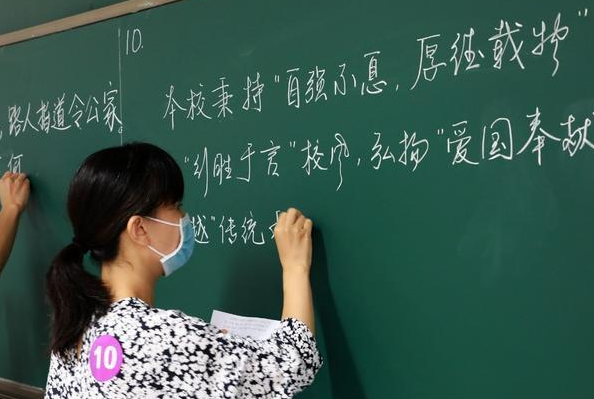 ，路人指道令公家。
何
10.
本校秉持“自强不息，厚德载物”
“行胜于言”校风，弘扬“爱国奉献
越”传统
10